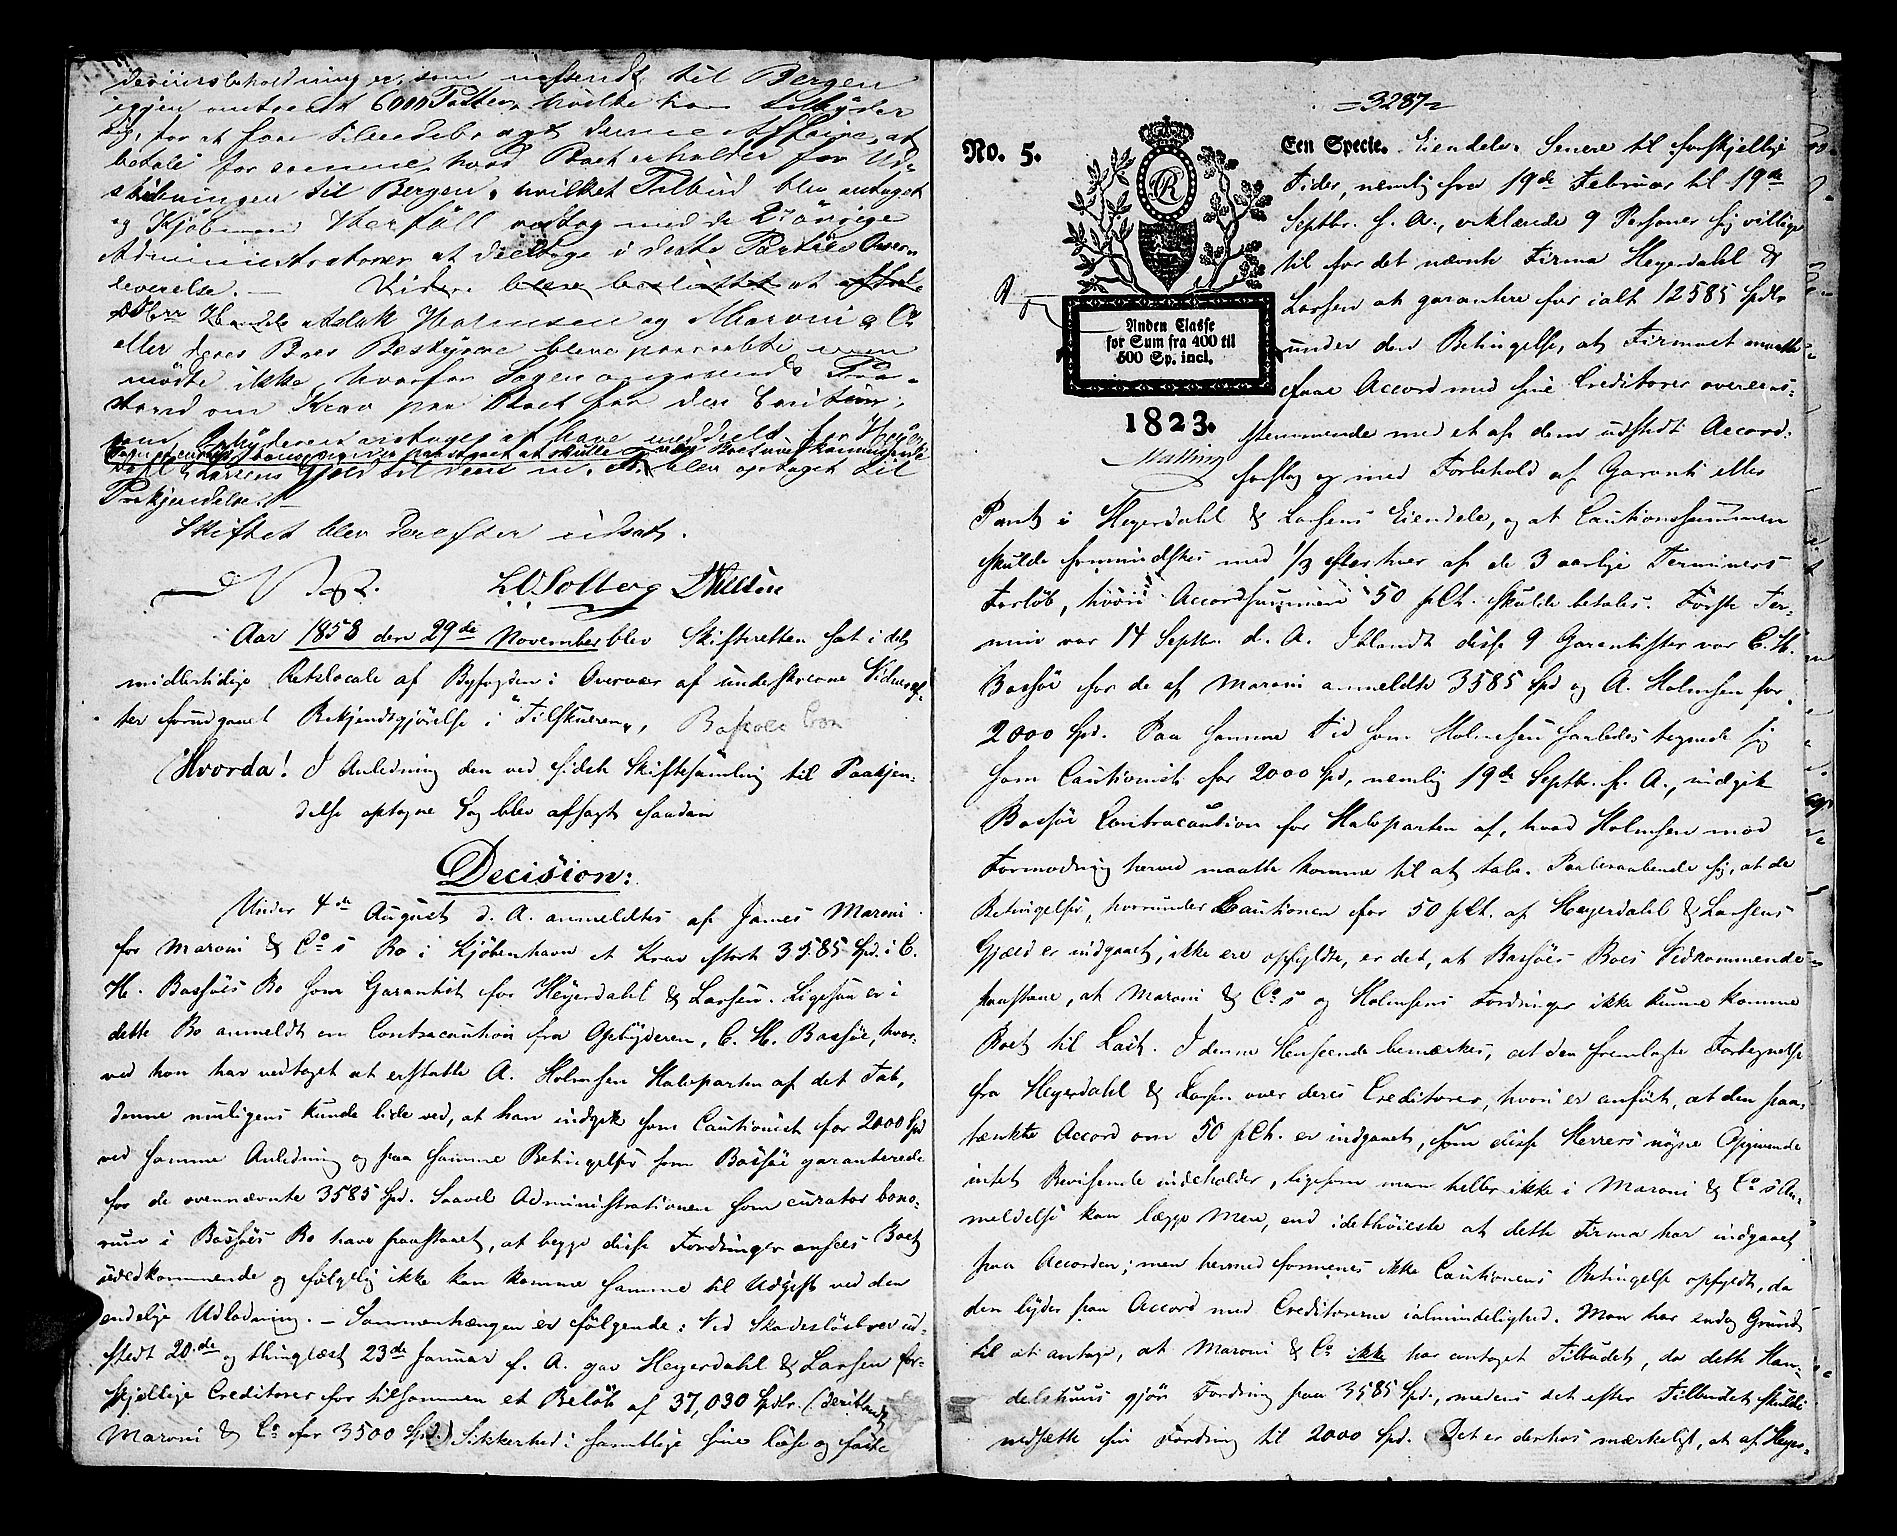 som nefsendt til Bergen
igjen omtrent 6000 Potter, hvilke han tilbyder
sig, for at faae tilendebragt denne Affaire, at
betale for samme hvad Boet erholder for Ud-
skibningen til Bergen, hvilket Tilbud blev antaget
og Kjøbmand vedtog med de 2 øvrige
Administratorer at deeltage i dette Parties Over-
leverelse. — Videre blev besluttet at
Herr Aslak Holmsen og Maroni & Co
eller deres Boes Bestyrere bleve paaraabte men
mødte ikke, hvorfor Sagen angaaende
om Krav paa Boet fra den Caution,
som Opbyderen antages at have meddelt for Heyer-
dahl & Larsens Gjeld til dem blev optaget til
Paakjendelse. —
Skiftet blev derefter udsat.
L. O. Solberg Nielsen
Aar 1858 den 29de November blev Skifteretten sat i det
midlertidige Retslocale af Byfogden i Overvær af undeskrevne Vidner ef-
ter forudgaaet Bekjendtgjørelse i "Tilskueren",
Hvorda! I Anledning den ved sidste Skiftesamling til Paakjen-
delse optagne Sag blev afsagt saadan
Decision:
Under 4de August d. A. anmeldtes af James Maroni
for Maroni & Co s Bo i Kjøbenhavn et Krav stort 3585 Spd. i C.
H. Bassøes Bo som Garantist for Heyerdahl & Larsen. Ligesaa er i
dette Bo anmeldt en Contracaution fra Opbyderen, C. H. Bassøe, hvor-
ved han har vedtaget at erstatte A. Holmsen Halvparten af det Tab,
denne muligens kunde lide ved, at han indgik som Cautionist for 2000 Spd
ved samme Anledning og paa samme Betingelser som Bassøe garanterede
for de ovennævnte 3585 Spd. Saavel Administrationen som curator bono-
rum i Bassøes Bo have paastaaet, at begge disse Fordringer ansees Boet
uvedkommende og følgelig ikke kan komme samme til Udgift ved den
endelige Udlodning. — Sammenhængen er følgende: Ved Skadesløsbrev ud-
stedt 20de og thinglæst 23de Januar f. A. gav Heyerdahl & Larsen for-
skjellige Creditorer for tilsammen et Beløb af 37,030 Spdlr. (deriblandt
Maroni & Co for 3500 Spd.) Sikkerhed i samtlige sine løse og faste
=3287=
No. 5. Een Specie. Eiendele. Senere til forskjellige
Tider, nemlig fra 19de Februar til 19de
Septbr. f. A., erklærede 9 Personer sig villige
til for det nævnte Firma Heyerdahl &
Larsen at garantere for ialt 12585 Spdlr
Anden Classe
for Sum fra 400 til
500 Sp. incl.
under den Betingelse, at Firmaet maatte
faae Accord med sine Creditorer overeens-
1823.
stemmende med et af dem udstedt Accord-
Malling
forslag og med Forbehold af Garanti eller
Pant i Heyerdahl & Larsens Eiendele, og at Cautionssummen
skulde formindskes med 1/3 efterhver af de 3 aarlige Terminers
Forløb, hvori Accordsummen 50 pCt. skulde betales. Første Ter-
min var 14 Septbr. d. A. Iblandt disse 9 Garantister var C. H.
Bassøe for de af Maroni anmeldte 3585 Spd og A. Holmsen for
2000 Spd. Paa samme Tid som Holmsen saaledes tegnede sig
som Cautionist for 2000 Spd, nemlig 19de Septbr. f. A., indgik
Bassøe Contracaution for Halvparten af, hvad Holmsen mod
Formodning herved maatte komme til at tabe. Paaberaabende sig, at de
Betingelser, hvorunder Cautionen for 50 pCt. af Heyerdahl & Larsens
Gjæld er indgaaet, ikke ere opfyldte, er det, at Bassøes Boes Vedkommende
paastaae, at Maroni & Co s og Holmsens Fordringer ikke kunne komme
Boet til Last. I denne Henseende bemærkes, at den fremlagte Fortegnelse
fra Heyerdahl & Larsen over deres Creditorer, hvori er anført, at den paa-
tænkte Accord om 50 pCt. er indgaaet, som disse Herrers nøgne Opgivende
intet Bevisende indeholder, ligesom man heller ikke i Maroni & Co s An-
meldelse kan lægge Mere, end idethøieste at dette Firma har indgaaet
paa Accorden; men hermed formenes ikke Cautionens Betingelse opfyldt, da
den lyder paa Accord med Creditorerne ialmindelighed. Man har endog Grund
til at antage, at Maroni & Co ikke har antaget Tilbudet, da dette Han-
delshuus gjør Fordring paa 3585 Spd., medens det efter Tilbudet skulde
nedsætte sin Fordring til 2000 Spd. Det er derhos mærkeligt, at af Heyer-